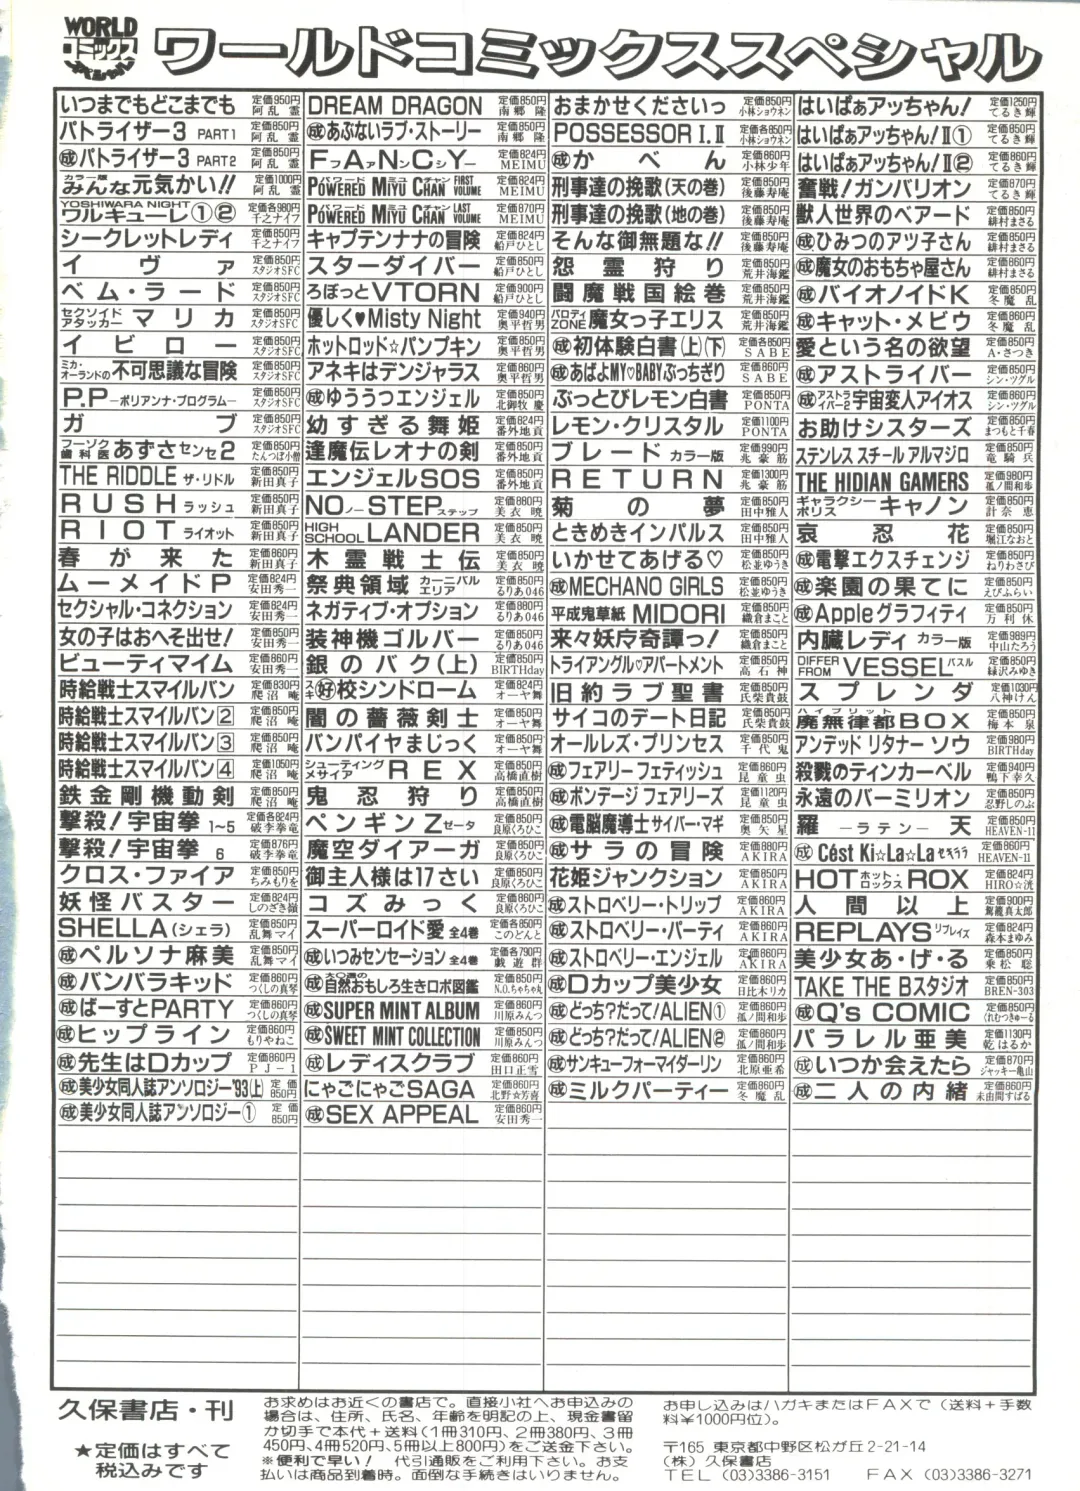 WORLD コミックス スペシャル
ワールドコミックススペシャル
いつまでもどこまでも 定価950円 阿乱霊
パトライザー3 PART1 定価850円 阿乱霊
成パトライザー3 PART2 定価850円 阿乱霊
カラー版 みんな元気かい!! 定価1000円 阿乱霊
YOSHIWARA NIGHT ワルキューレ①② 定価各980円 千之ナイフ
シークレットレディ 定価850円 千之ナイフ
イヴァ 定価850円 スタジオSFC
ベム・ラード 定価850円 スタジオSFC
セクソイドアタッカー マリカ 定価850円 スタジオSFC
イビロー 定価850円 スタジオSFC
ミカ・オーランドの不可思議な冒険 定価850円 スタジオSFC
P.P―ポリアンナ・プログラム― 定価850円 スタジオSFC
ガブ 定価824円 スタジオSFC
フーゾク歯科医 あずさセンセ2 定価850円 たんつぼ小僧
THE RIDDLE ザ・リドル 定価850円 新田真子
RUSH ラッシュ 定価850円 新田真子
RIOT ライオット 定価850円 新田真子
春が来た 定価860円 新田真子
ムーメイドP 定価824円 安田秀一
セクシャル・コネクション 定価824円 安田秀一
女の子はおへそ出せ! 定価850円 安田秀一
ビューティマイム 定価860円 安田秀一
時給戦士スマイルバン 定価830円 爬沼庵
時給戦士スマイルバン2 定価850円 爬沼庵
時給戦士スマイルバン3 定価850円 爬沼庵
時給戦士スマイルバン4 定価1050円 爬沼庵
鉄金剛機動剣 定価850円 爬沼庵
撃殺!宇宙拳 1~5 定価各824円 破李拳竜
撃殺!宇宙拳 6 定価876円 破李拳竜
クロス・ファイア 定価850円 ちみもりを
妖怪バスター 定価824円 しのざき嶺
SHELLA(シェラ) 定価850円 乱舞マイ
成ペルソナ麻美 定価850円 乱舞マイ
成バンバラキッド 定価860円 つくしの真琴
成ばーすとPARTY 定価860円 つくしの真琴
成ヒップライン 定価860円 もりやねこ
成先生はDカップ 定価860円 PJ-1
成美少女同人誌アンソロジー'93(上) 定価850円
成美少女同人誌アンソロジー① 定価850円
DREAM DRAGON 定価850円 南郷隆
成あぶないラブ・ストーリー 定価850円 南郷隆
FァNCY 定価824円 MEIMU
POWERED MIYU CHAN パワードミユチャン FIRST VOLUME 定価824円 MEIMU
POWERED MIYU CHAN パワードミユチャン LAST VOLUME 定価870円 MEIMU
キャプテンナナの冒険 定価824円 船戸ひとし
スターダイバー 定価850円 船戸ひとし
ろぼっとVTORN 定価900円 船戸ひとし
優しく♥Misty Night 定価940円 奥平哲男
ホットロッド☆パンプキン 定価850円 奥平哲男
アネキはデンジャラス 定価860円 奥平哲男
成ゆううつエンジェル 定価850円 北御牧慶
幼すぎる舞姫 定価824円 番外地貢
逢魔伝レオナの剣 定価850円 番外地貢
エンジェルSOS 定価850円 番外地貢
NO STEP ノーステップ 定価880円 美衣暁
HIGH SCHOOL LANDER 定価850円 美衣暁
木霊戦士伝 定価850円 美衣暁
祭典領域 カーニバルエリア 定価850円 るりあ046
ネガティブ・オプション 定価880円 るりあ046
装神機ゴルバー 定価850円 るりあ046
銀のバク(上) 定価850円 BIRTHday
スキ好校シンドローム 定価824円 オーヤ舞
闇の薔薇剣士 定価850円 オーヤ舞
バンパイヤまじっく 定価850円 オーヤ舞
シューティングメサイア REX 定価850円 高橋直樹
鬼忍狩り 定価850円 高橋直樹
ペンギンZ ゼータ 定価850円 良原くろひこ
魔空ダイアーガ 定価850円 良原くろひこ
御主人様は17さい 定価850円 良原くろひこ
コズみっく 定価860円 良原くろひこ
スーパーロイド愛 全4巻 定価各850円 このどんと
成いつみセンセーション 全4巻 定価各790円 戯遊群
成大〇遇の自然おもしろ生きロボ図鑑 定価850円
成SUPER MINT ALBUM 定価860円 川原みんつ
成SWEET MINT COLLECTION 定価850円 川原みんつ
成レディスクラブ 定価860円 田口正雪
にゃごにゃごSAGA 定価860円 北野☆芳喜
成SEX APPEAL 定価860円 安田秀一
おまかせくださいっ 定価850円 小林ショウネン
POSSESSOR I.II 定価各850円 小林ショウネン
成かべん 定価860円 小林少年
刑事達の挽歌(天の巻) 定価850円 後藤寿庵
刑事達の挽歌(地の巻) 定価850円 後藤寿庵
そんな御無題な!! 定価850円 後藤寿庵
怨霊狩り 定価850円 荒井海鑑
闘魔戦国絵巻 定価850円 荒井海鑑
パロディZONE 魔女っ子エリス 定価850円 荒井海鑑
成初体験白書(上)(下) 定価各850円 SABE
成あばよMY♡BABYぶっちぎり 定価860円 SABE
ぶっとびレモン白書 定価850円 PONTA
レモン・クリスタル 定価1100円 PONTA
ブレード カラー版 定価990円 兆豪筋
RETURN 定価1300円 兆豪筋
菊の夢 定価850円 田中雅人
ときめきインパルス 定価850円 田中雅人
いかせてあげる♡ 定価850円 松並ゆうき
成MECHANO GIRLS 定価850円 松並ゆうき
平成鬼草紙 MIDORI 定価850円 織倉まこと
来々妖序奇譚っ! 定価850円 織倉まこと
トライアングル♡アパートメント 定価850円 高石神
旧約ラブ聖書 定価850円 氏柴貴鼓
サイコのデート日記 定価850円 氏柴貴鼓
オールレズ・プリンセス 定価850円 千代鬼
成フェアリーフェティッシュ 定価860円 昆童虫
成ボンデージフェアリーズ 定価1120円 昆童虫
成電脳魔導士サイバー・マギ 定価850円 奥矢星
成サラの冒険 定価880円 AKIRA
花姫ジャンクション 定価850円 AKIRA
成ストロベリー・トリップ 定価860円 AKIRA
成ストロベリー・パーティ 定価860円 AKIRA
成ストロベリー・エンジェル 定価850円 AKIRA
成Dカップ美少女 定価860円 日比木リカ
成どっち?だって!ALIEN① 定価860円 孤ノ間和歩
成どっち?だって!ALIEN② 定価860円 孤ノ間和歩
成サンキューフォーマイダーリン 定価860円 北原亜希
成ミルクパーティー 定価860円 冬魔乱
はいぱぁアッちゃん! 定価1250円 てるき輝
はいぱぁアッちゃん!II① 定価860円 てるき輝
はいぱぁアッちゃん!II② 定価860円 てるき輝
奮戦!ガンバリオン 定価870円 てるき輝
獣人世界のベアード 定価850円 緋村まさる
成ひみつのアッ子さん 定価850円 緋村まさる
成魔女のおもちゃ屋さん 定価860円 緋村まさる
成バイオノイドK 定価850円 冬魔乱
成キャット・メビウ 定価860円 冬魔乱
愛という名の欲望 定価850円 A・さつき
成アストライバー 定価850円 シン・ツグル
成アストライバー2 宇宙変人アイオス 定価860円 シン・ツグル
お助けシスターズ 定価850円 まつもと千春
ステンレススチールアルマジロ 定価850円 竜騎兵
THE HIDIAN GAMERS 定価980円 孤ノ間和歩
ギャラクシーポリス キャノン 定価850円 計奈恵
哀忍花 定価850円 堀江なおと
成電撃エクスチェンジ 定価850円 ねりわさび
成楽園の果てに 定価850円 えびふらい
成Appleグラフィティ 定価850円 万利休
内臓レディ カラー版 定価989円 中山たろう
DIFFER FROM VESSEL バスル 定価850円 緑沢みゆき
スプレンダ 定価1030円 八神けん
ハイブリット 廃無律都BOX 定価850円 梅本泉
アンデッド リタナーソウ 定価980円 BIRTHday
殺戮のティンカーベル 定価940円 鴨下幸久
永遠のバーミリオン 定価850円 忍野しのぶ
羅―ラテン―天 定価850円 HEAVEN-11
成C'est Ki☆La☆La セキララ 定価860円 HEAVEN-11
HOT ROX ホット・ロックス 定価824円 HIRO☆洸
人間以上 定価900円 駕籠真太郎
REPLAYS リプレイズ 定価824円 森本まゆみ
美少女あ・げ・る 定価850円 乗松聡
TAKE THE Bスタジオ 定価850円 BREN-303
成Q's COMIC 定価850円 くれむつきゅーる
パラレル亜美 定価1130円 乾はるか
成いつか会えたら 定価870円 ジャッキー亀山
成二人の内緒 定価860円 未由間すばる
久保書店・刊
★定価はすべて
税込みです
お求めはお近くの書店で。直接小社へお申込みの
場合は、住所、氏名、年齢を明記の上、現金書留
か切手で本代+送料(1冊310円、2冊380円、3冊
450円、4冊520円、5冊以上800円)をご送金下さい。
※便利で早い! 代引通販をご利用下さい。お支
払いは商品到着時。面倒な手続きはいりません。
お申し込みはハガキまたはFAXで(送料+手数
料¥1000円位)。
〒165 東京都中野区松が丘2-21-14
(株)久保書店
TEL (03)3386-3151 FAX (03)3386-3271